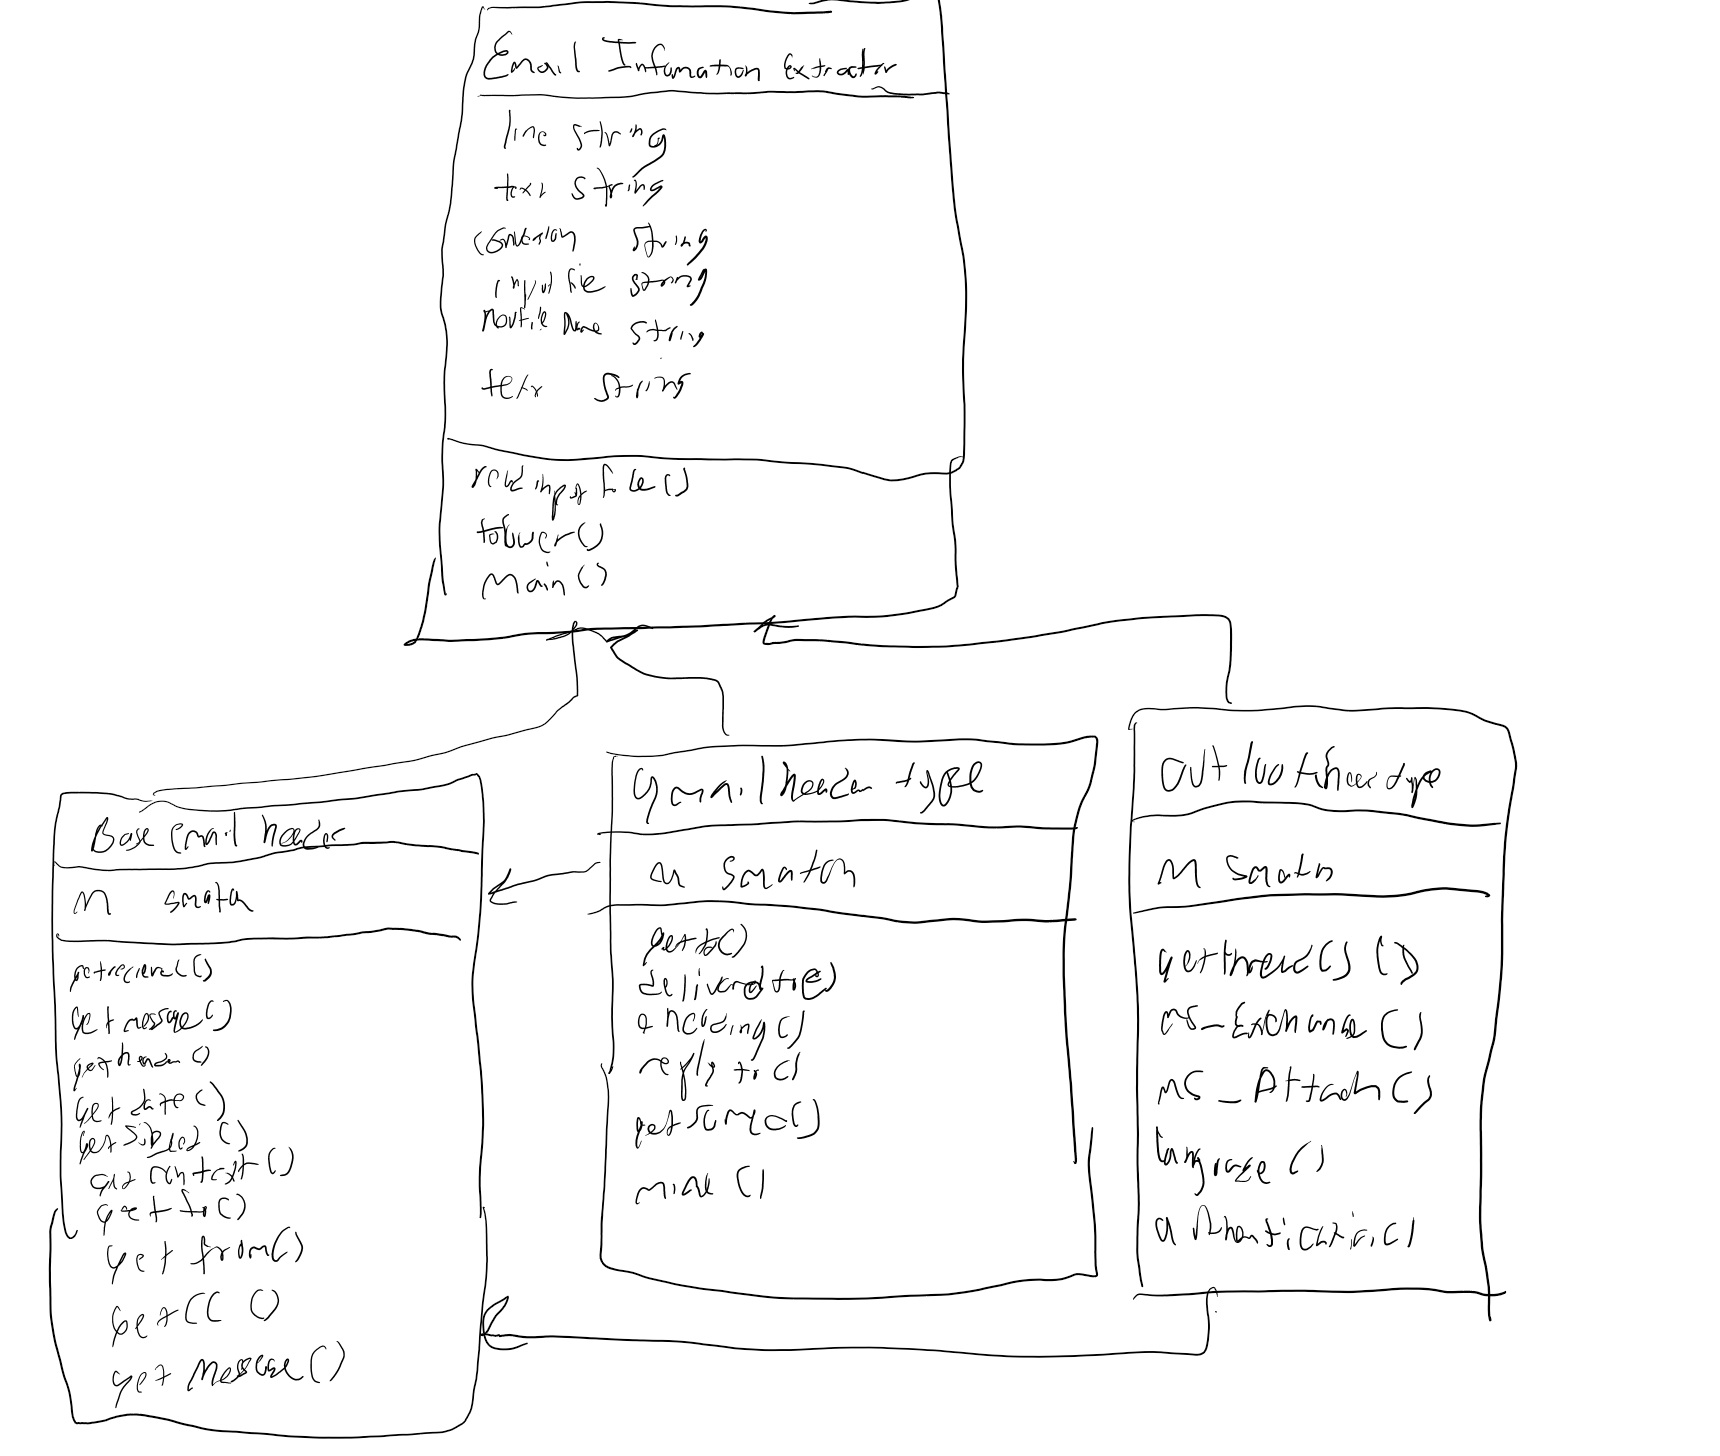 Email Infomation Extractor
line string
text string
conversion string
input file string
string
text string
read input file()
tolower()
Main()
Base Email header
M smatch
getrecieved()
get message()
get header()
get date()
get subject()
get context()
get to()
get from()
get CC ()
get Message()
gmail header type
M Smatch
get to()
deliverdto()
encoding()
reply to()
mime()
outlook header type
M Smatch
getthread() ()
MS_Exchange()
MS_Attach()
language()
authentication()